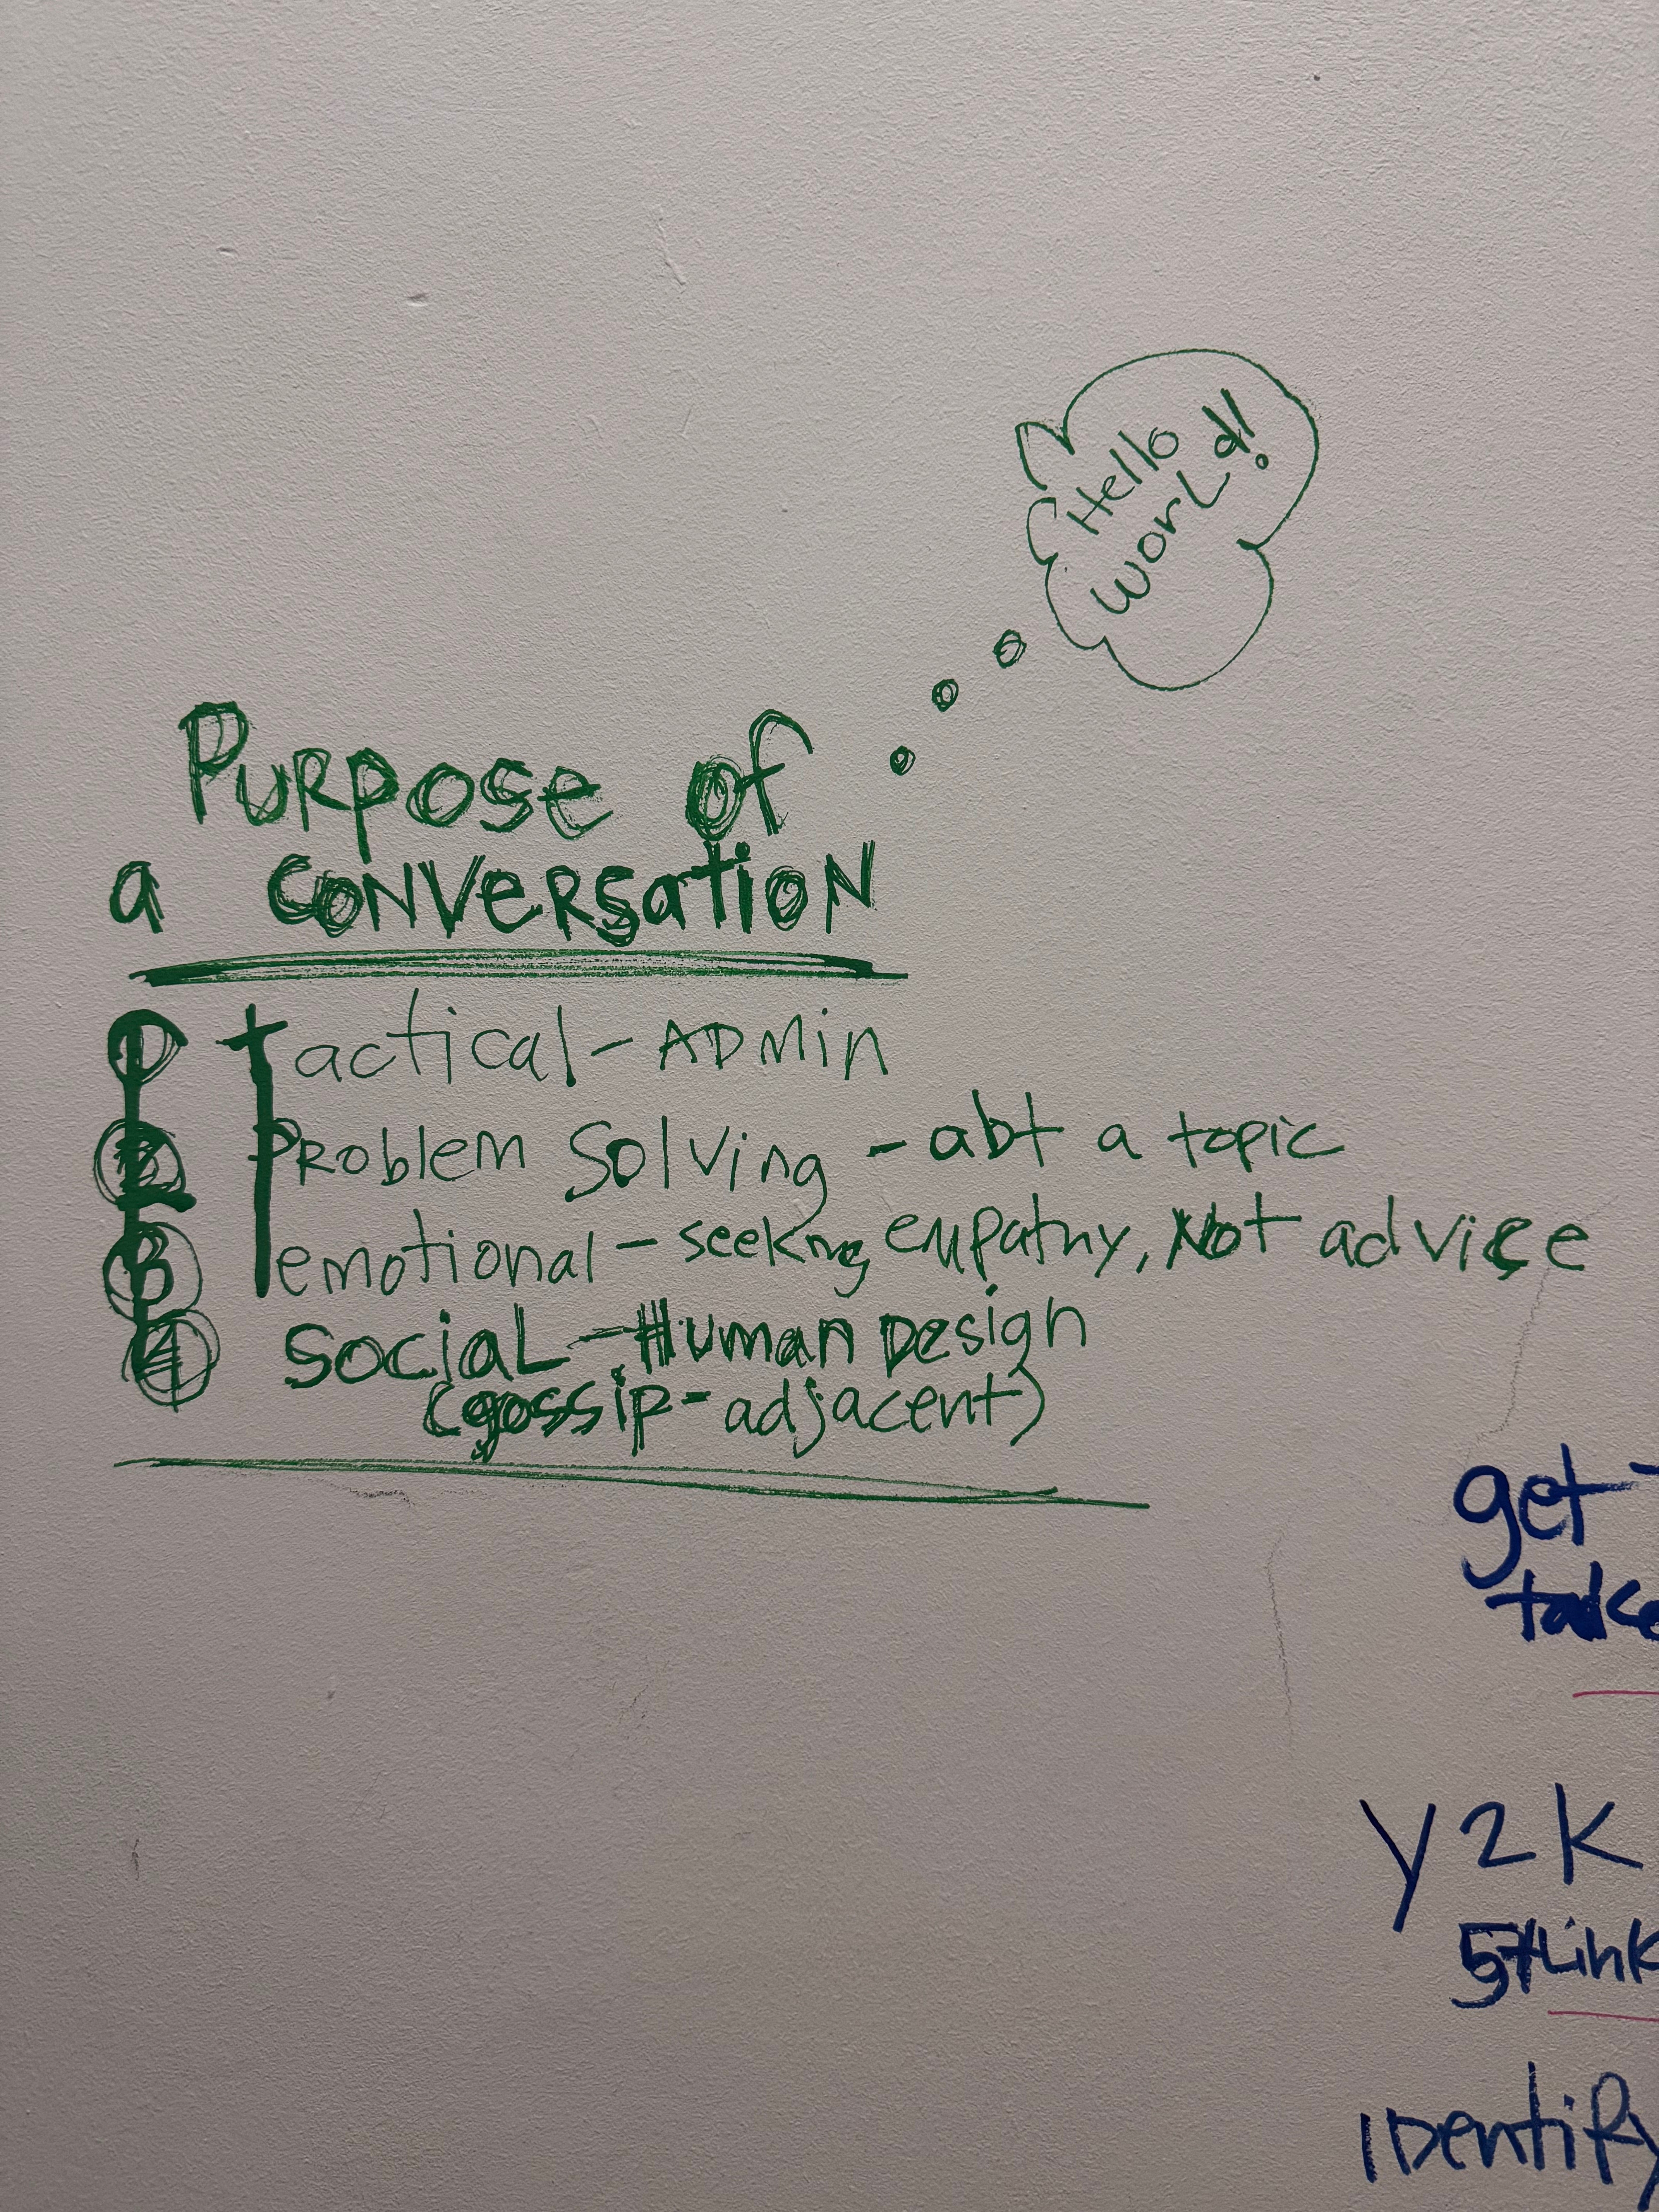 Hello
World!
Purpose of
a conversation
1 Tactical - ADMIN
2 Problem Solving - abt a topic
3 emotional - seeking empathy, Not advice
4 Social - Human Design
(gossip-adjacent)
get-
take
Y2K
Identify